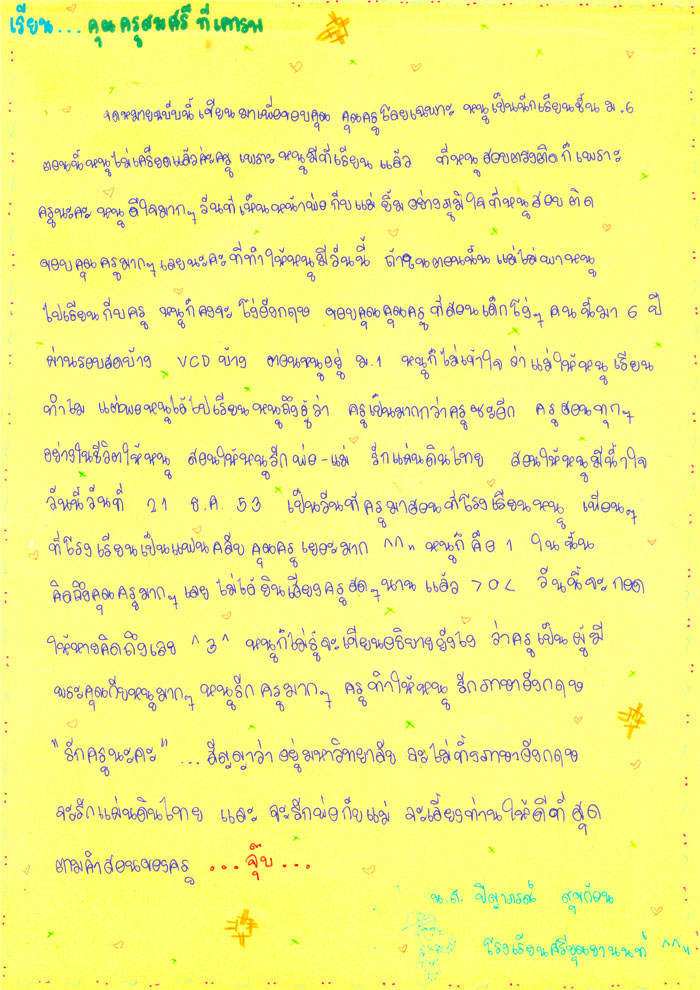 เรียน... คุณครูสมศรี ที่เคารพ
จดหมายฉบับนี้ เขียนมาเพื่อขอบคุณ คุณครูโดยเฉพาะ หนูเป็นนักเรียนชั้น ม.6
ตอนนี้หนูไม่เครียดแล้วค่ะครู เพราะหนูมีที่เรียน แล้ว ที่หนูสอบตรงติดก็เพราะ
ครูนะคะ หนูดีใจมากๆ วันที่เห็นหน้าพ่อกับแม่ ยิ้มอย่างภูมิใจที่หนูสอบติด
ขอบคุณครูมากๆ เลยนะคะที่ทำให้หนูมีวันนี้ ถ้าในตอนนั้นแม่ไม่พาหนู
ไปเรียนกับครู หนูก็คงจะ โง่อังกฤษ ขอบคุณคุณครูที่สอนเด็กโง่ๆ คนนี้มา 6 ปี
ผ่านรอบสดบ้าง VCD บ้าง ตอนหนูอยู่ ม.1 หนูก็ไม่เข้าใจ ว่าแม่ให้หนูเรียน
ทำไม แต่พอหนูได้ไปเรียนหนูถึงรู้ว่า ครูเป็นมากกว่าครูซะอีก ครูสอนทุกๆ
อย่างในชีวิตให้หนู สอนให้หนูรักพ่อ-แม่ รักแผ่นดินไทย สอนให้หนูมีน้ำใจ
วันนี้วันที่ 21 ธ.ค. 53 เป็นวันที่ครูมาสอนที่โรงเรียนหนู เพื่อนๆ
ที่โรงเรียนเป็นแฟนคลับคุณครูเยอะมาก ^^" หนูก็คือ 1 ในนั้น
คิดถึงคุณครูมากๆ เลย ไม่ได้ยินเสียงครูสดๆ นาน แล้ว >o< วันนี้จะกอด
ให้หายคิดถึงเลย ^3^ หนูก็ไม่รู้จะเขียนอธิบายยังไง ว่าครูเป็นผู้มี
พระคุณกับหนูมากๆ หนูรักครูมากๆ ครูทำให้หนู รักภาษาอังกฤษ
"รักครูนะคะ" ... สัญญาว่า อยู่มหาวิทยาลัย จะไม่ทิ้งภาษาอังกฤษ
จะรักแผ่นดินไทย และ จะรักพ่อกับแม่ จะเลี้ยงท่านให้ดีที่สุด
ตามคำสอนของครู ...จุ๊บ...
น.ส. ปิญาภรณ์ สุขก้อน
โรงเรียนศรีอยุธยานนท์ ^^"